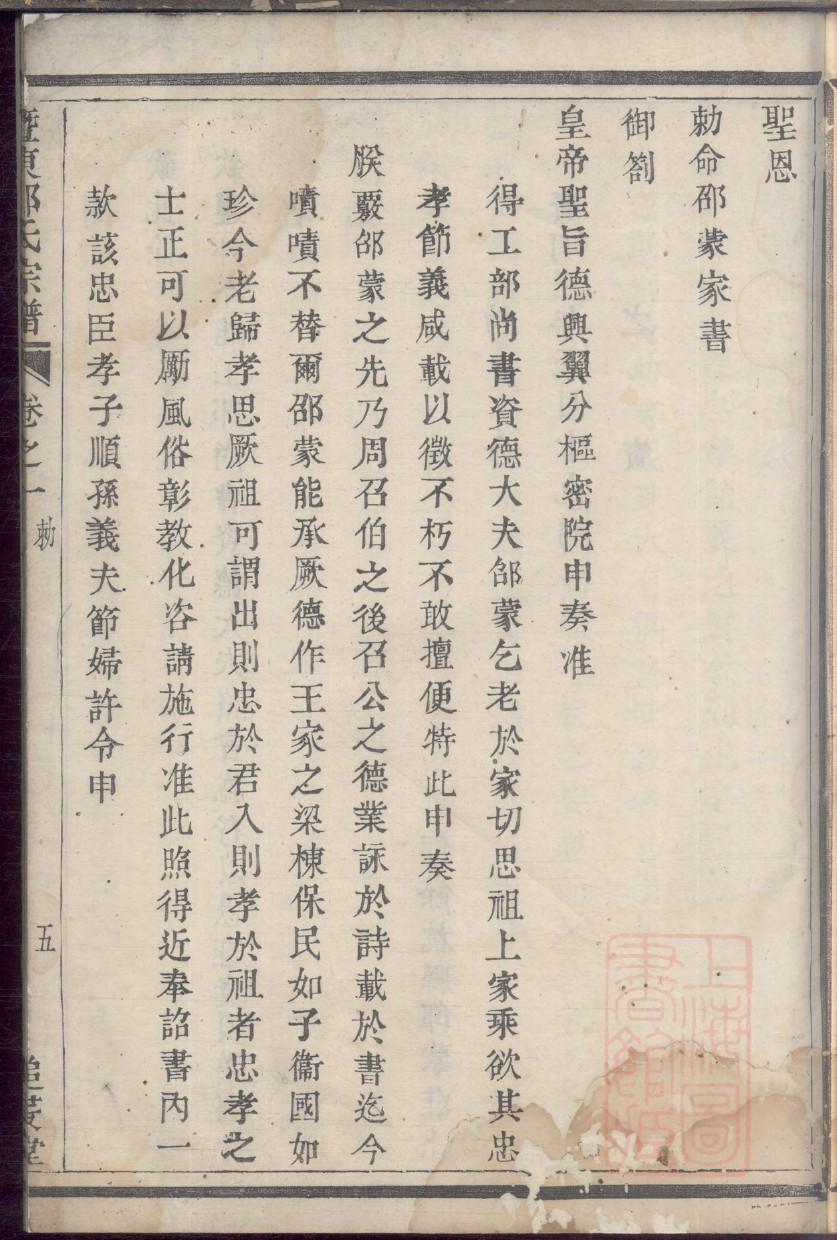 聖恩
勑命邵蒙家書
御劄
皇帝聖旨德興翼分樞密院申奏准
得工部尚書資德大夫邵蒙乞老於家切思祖上家乘欲其忠
孝節義咸載以徵不朽不敢擅便特此申奏
朕覈邵蒙之先乃周召伯之後召公之德業詠於詩載於書迄今
嘖嘖不替爾邵蒙能承厥德作王家之梁棟保民如子衞國如
珍今老歸孝思厥祖可謂出則忠於君入則孝於祖者忠孝之
士正可以勵風俗彰教化咨請施行准此照得近奉詔書內一
款該忠臣孝子順孫義夫節婦許令申
暨東邵氏宗譜 卷之一 勑 五 追遠堂
上海圖書館藏